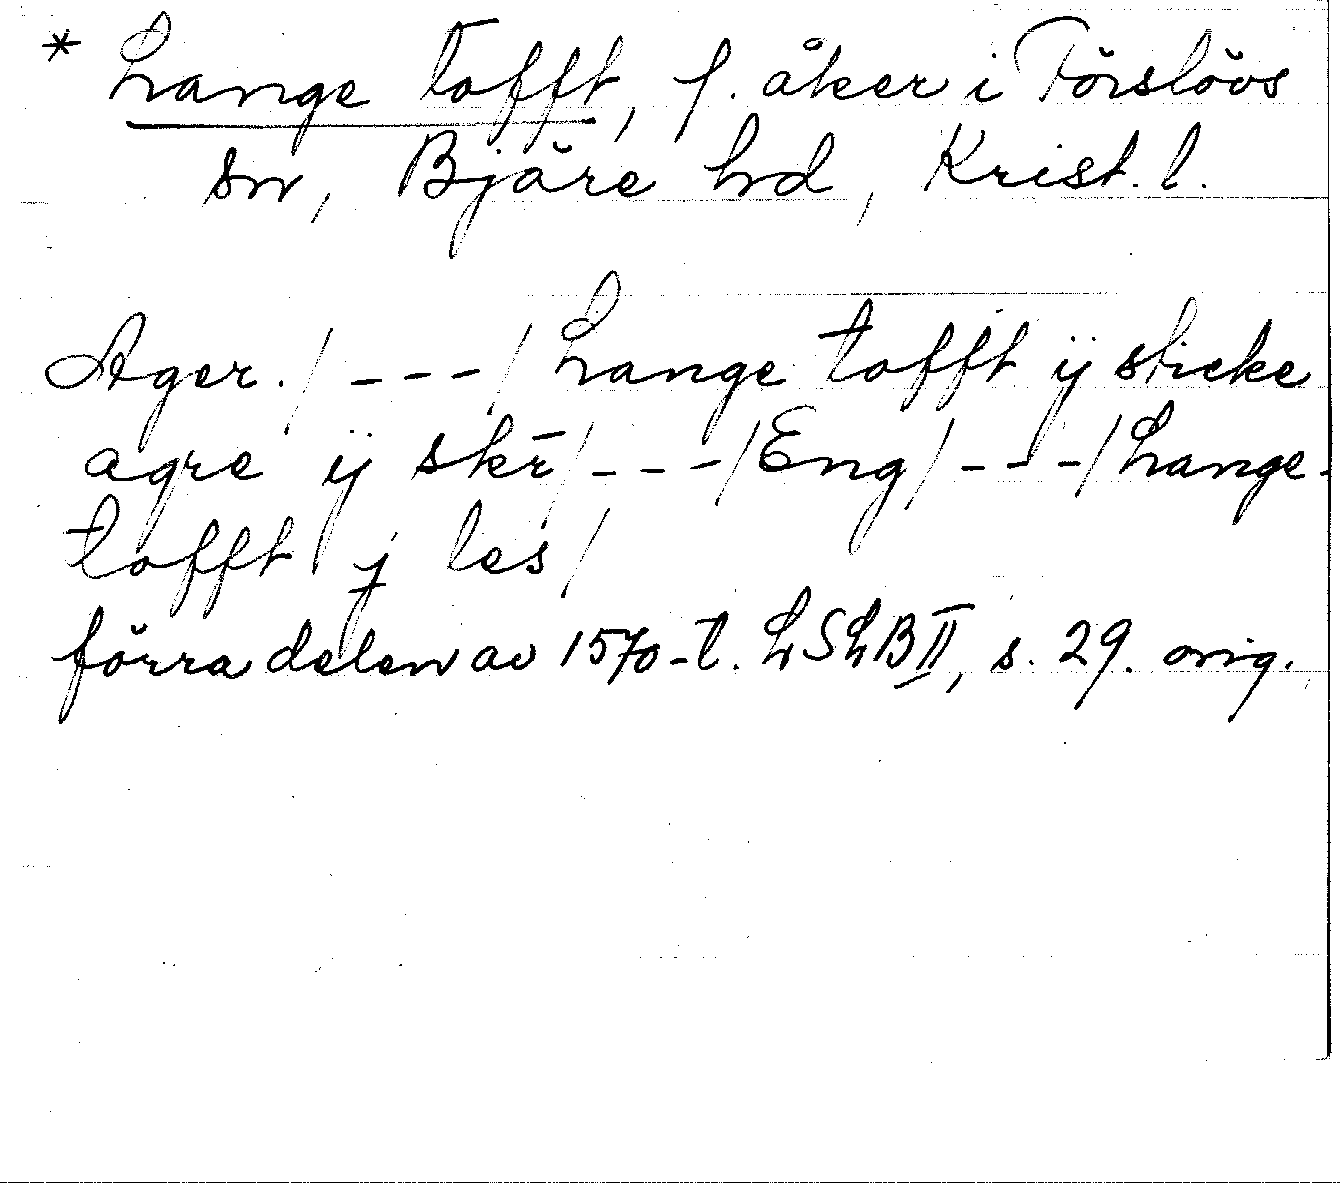 * Lange tofft, f. åker i Förslövs
sn, Bjäre hd, Krist. l.
Ager. / - - - / Lange tofft ÿ sticke
agre ÿ skr̄ / - - - / Eng / - - - / Lange-
tofft j les /
förra delen av 1570-t. LSLB II, s. 29. orig.